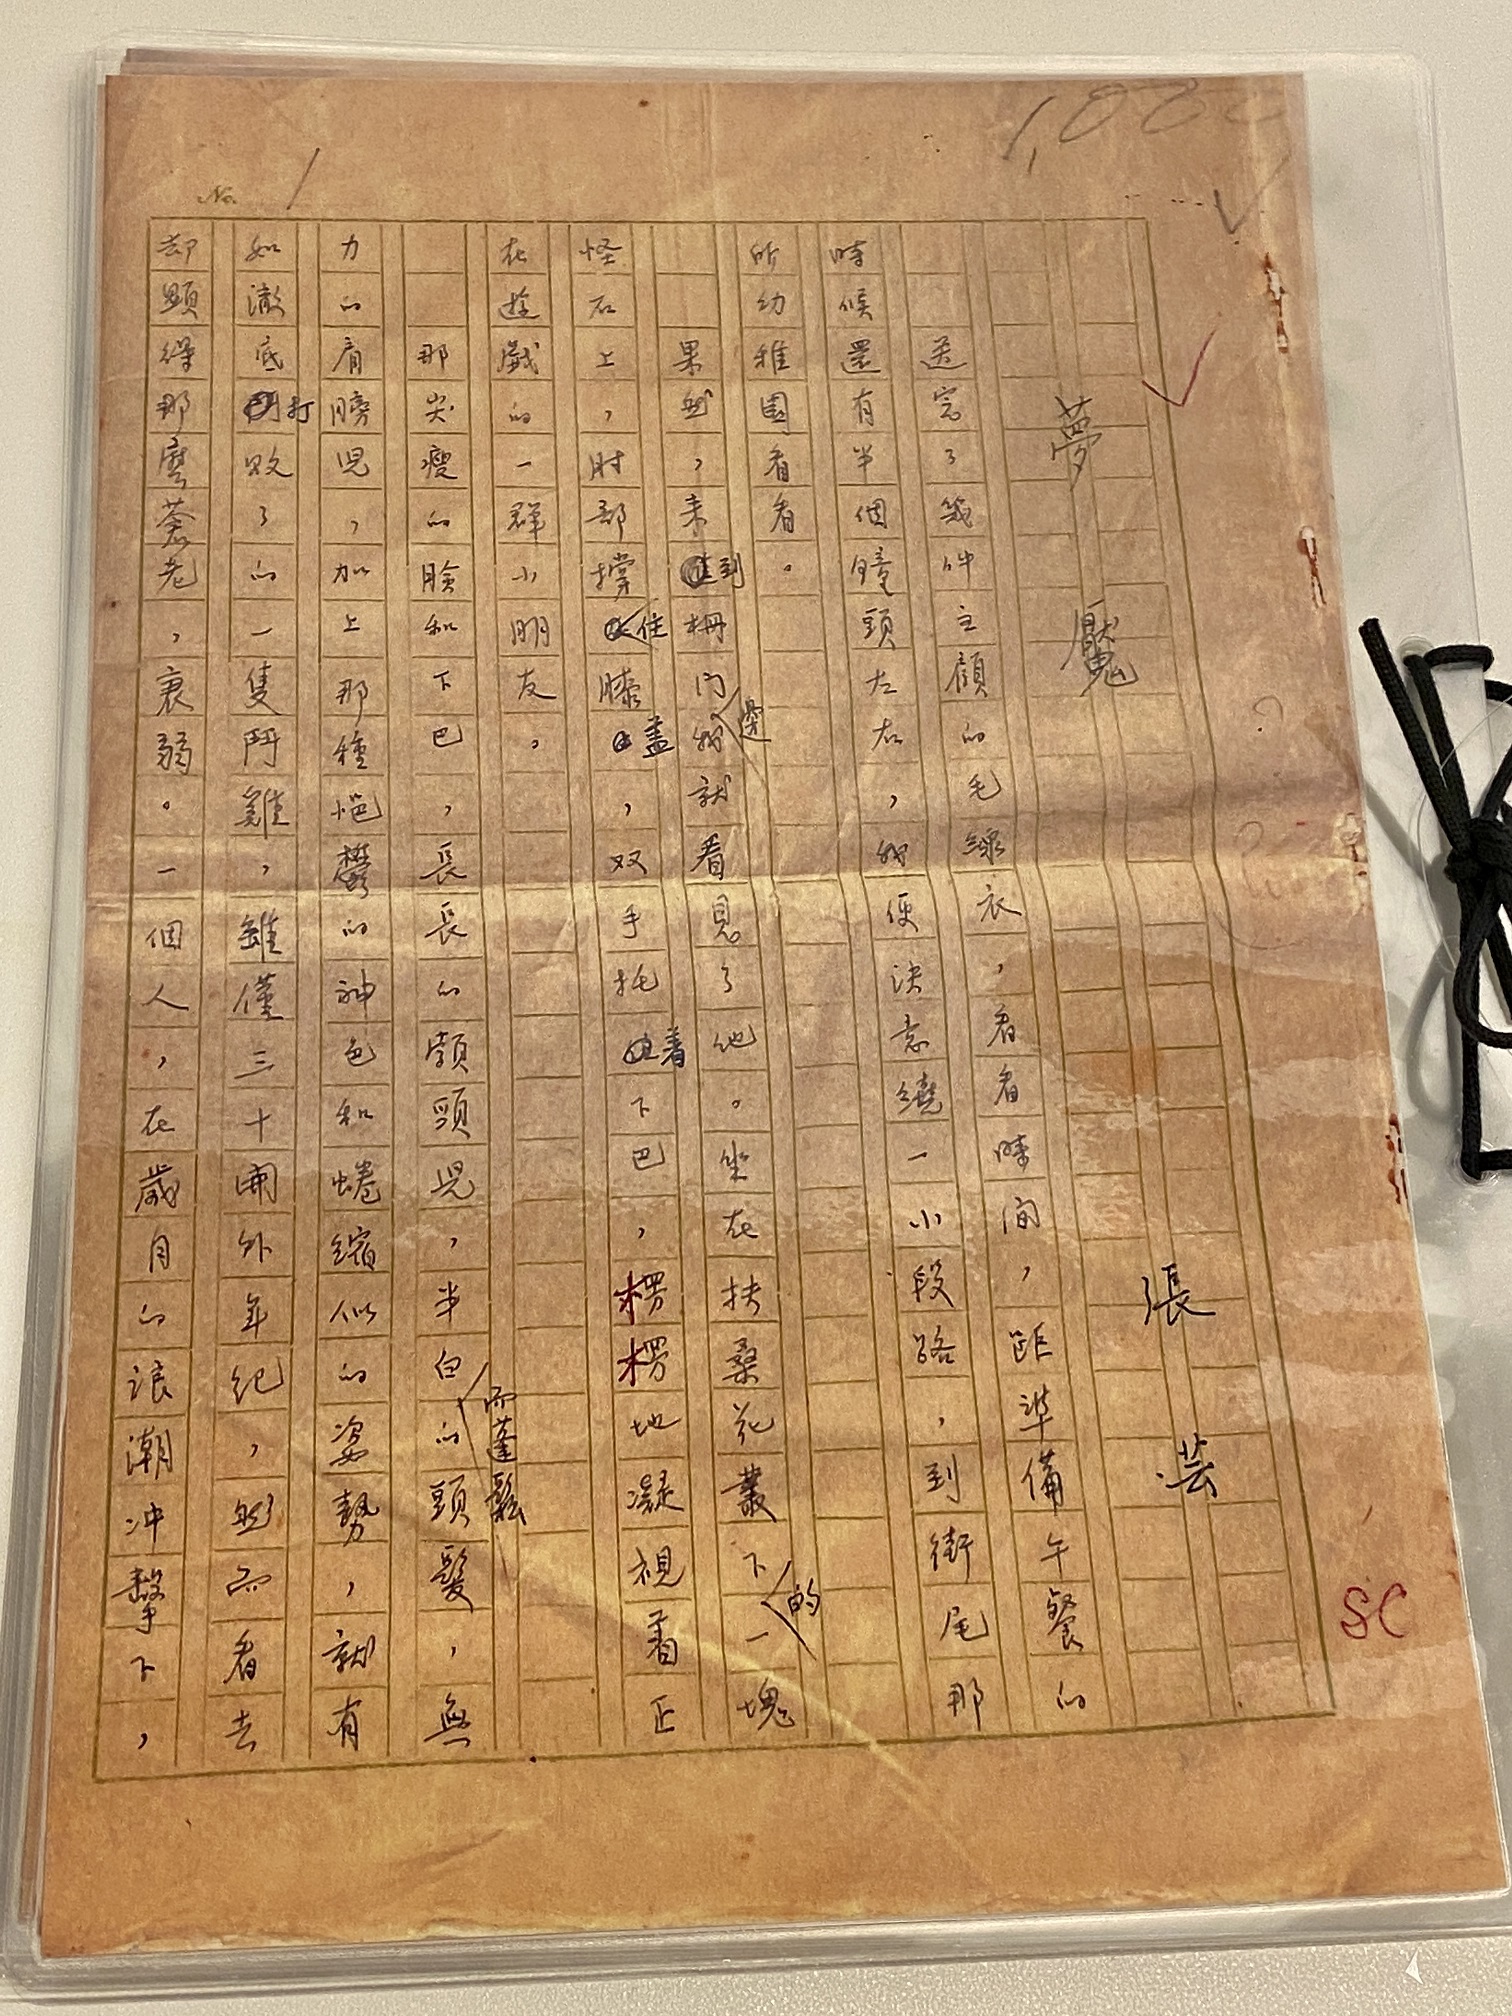 1,000
No. 1
夢魘
張芸
送完了幾件主顧的毛線衣，看看時間，距準備午餐的
時候還有半個鐘頭左右，我便決意繞一小段路，到街尾那
所幼稚園看看。
果然，未到柵門邊我就看見了他。坐在扶桑花叢下的一塊
怪石上，肘部撐住膝盖，双手托着下巴，楞楞地凝視着正
在遊戲的一群小朋友，
那尖瘦的臉和下巴，長長的顎頸兒，半白而蓬鬆的頭髮，無
力的肩膀兒，加上那種悒鬱的神色和蜷縮似的姿勢，就有
如澈底打敗了的一隻鬥雞，雖僅三十開外年紀，然而看去
却顯得那麼蒼老，衰弱。一個人，在歲月的浪潮冲擊下，
SC